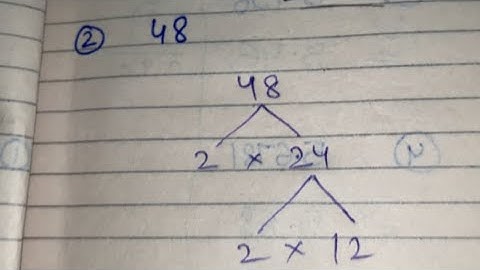 ② 48
48
2 × 24
2 × 12